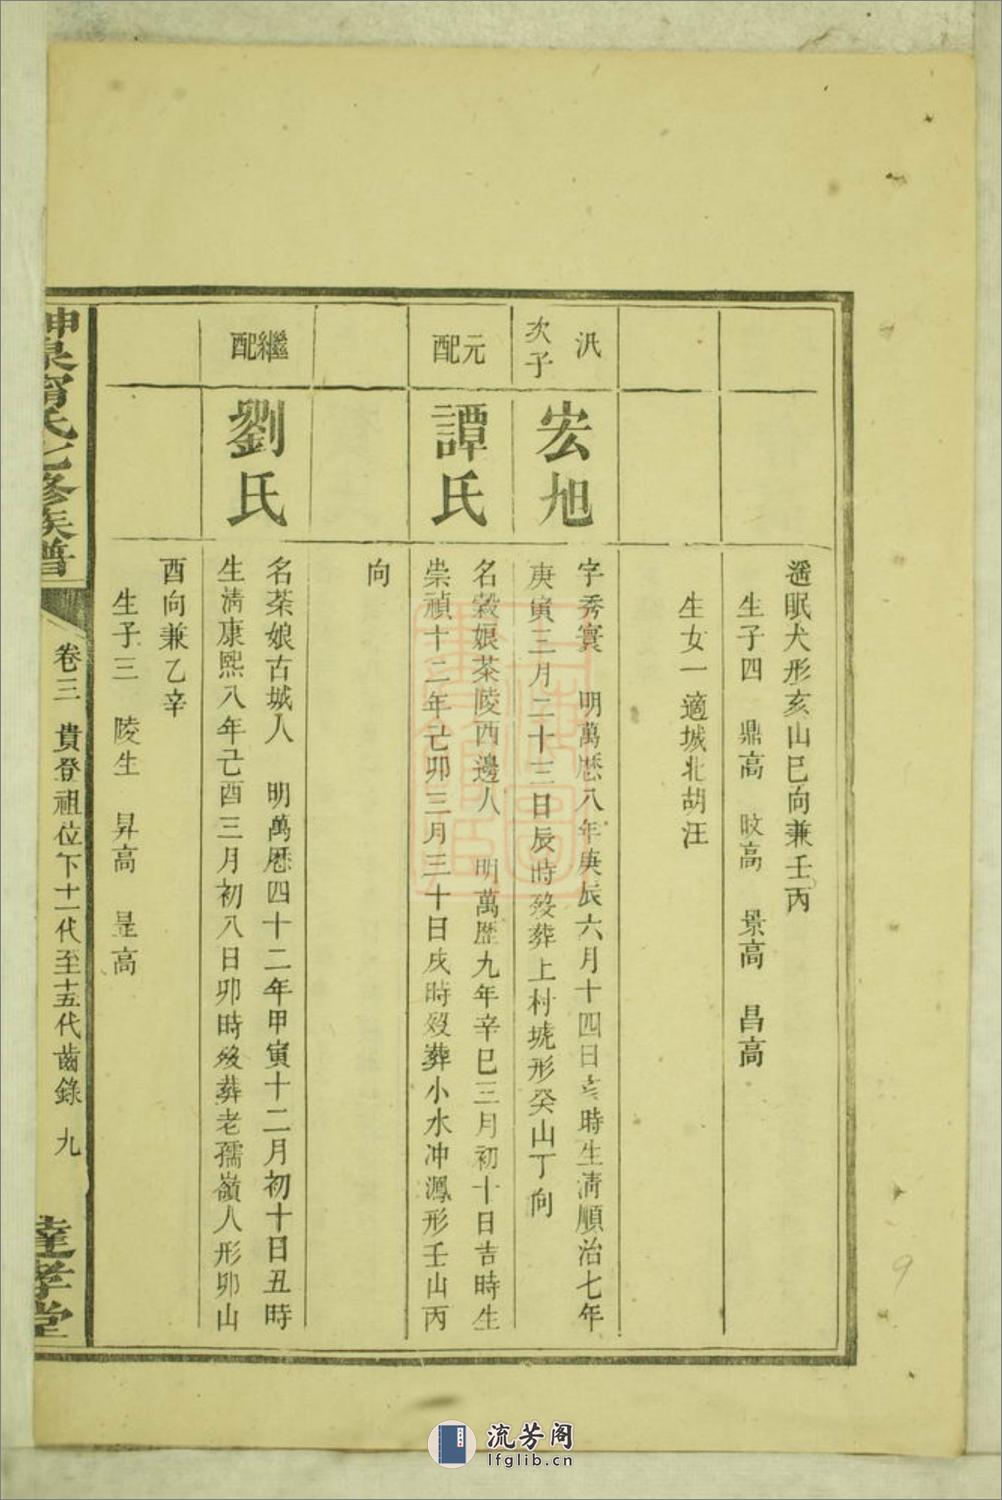 遥眠犬形亥山巳向兼壬丙
生子四　鼎高　旼高　景高　昌高
生女一適城北胡汪
汎次子
宏旭
字秀寰　明萬厯八年庚辰六月十四日亥時生清順治七年
庚寅三月二十三日辰時歿葬上村墝形癸山丁向
元配
譚氏
名穀娘茶陵西邊人　明萬歷九年辛巳三月初十日吉時生
崇禎十二年己卯三月三十日戌時歿葬小水冲鳳形壬山丙
向
繼配
劉氏
名茶娘古城人　明萬厯四十二年甲寅十二月初十日丑時
生清康熙八年己酉三月初八日卯時歿葬老孺嶺人形卯山
酉向兼乙辛
生子三　陵生　昇高　昰高
神泉甯氏七修族譜
卷三　貴登祖位下十一代至十五代齒錄　九
達孝堂
9
流芳阁
lfglib.cn